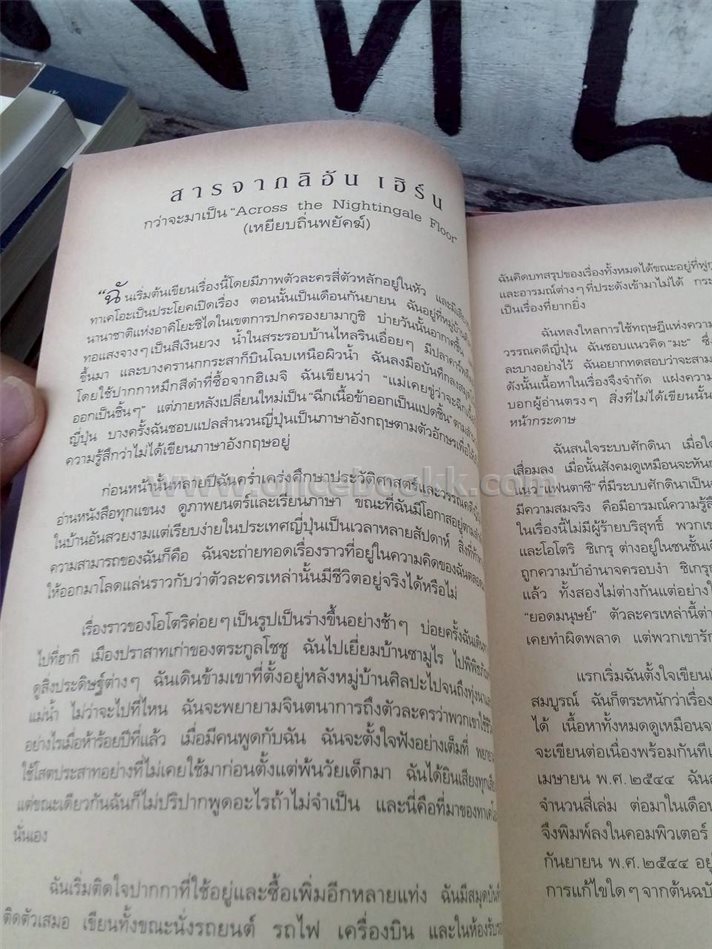 สารจากลิอัน เฮิร์น
กว่าจะมาเป็น "Across the Nightingale Floor"
(เหยียบถิ่นพยัคฆ์)
"ฉันเริ่มต้นเขียนเรื่องนี้โดยมีภาพตัวละครสี่ตัวหลักอยู่ในหัว และมีเสียง
ทาเคโอะเป็นประโยคเปิดเรื่อง ตอนนั้นเป็นเดือนกันยายน ฉันอยู่ที่หมู่บ้าน
นานาชาติแห่งอาคิโยะชิไดในเขตการปกครองยามากูชิ บ่ายวันนั้นอากาศ
ทอแสงจางๆ เป็นสีเงินยวง น้ำในสระรอบบ้านไหลรินเอื่อยๆ มีปลาคาร์พ
ขึ้นมา และบางครานกกระสาก็บินโฉบเหนือผิวน้ำ ฉันลงมือบันทึกลงสมุด
โดยใช้ปากกาหมึกสีดำที่ซื้อจากฮิเมจิ ฉันเขียนว่า "แม่เคยขู่ว่าจะฉีกเนื้อ
ออกเป็นชิ้นๆ" แต่ภายหลังเปลี่ยนใหม่เป็น "ฉีกเนื้อข้าออกเป็นแปดชิ้น" ตาม
ญี่ปุ่น บางครั้งฉันชอบแปลสำนวนญี่ปุ่นเป็นภาษาอังกฤษตามตัวอักษรเพื่อให้
ความรู้สึกว่าไม่ได้เขียนภาษาอังกฤษอยู่
ก่อนหน้านั้นหลายปีฉันคร่ำเคร่งศึกษาประวัติศาสตร์และวรรณคดีญี่ปุ่น
อ่านหนังสือทุกแขนง ดูภาพยนตร์และเรียนภาษา ขณะที่ฉันมีโอกาสอยู่ตามลำพัง
ในบ้านอันสวยงามแต่เรียบง่ายในประเทศญี่ปุ่นเป็นเวลาหลายสัปดาห์ สิ่งที่
ความสามารถของฉันก็คือ ฉันจะถ่ายทอดเรื่องราวที่อยู่ในความคิดของฉัน
ให้ออกมาโลดแล่นราวกับว่าตัวละครเหล่านั้นมีชีวิตอยู่จริงได้หรือไม่
เรื่องราวของโอโตริค่อยๆ เป็นรูปเป็นร่างขึ้นอย่างช้าๆ บ่อยครั้งฉันเดินทาง
ไปที่ฮากิ เมืองปราสาทเก่าของตระกูลโชชู ฉันไปเยี่ยมบ้านซามูไร ไปพิพิธภัณฑ์
ดูสิ่งประดิษฐ์ต่างๆ ฉันเดินข้ามเขาที่ตั้งอยู่หลังหมู่บ้านศิลปะไปจนถึงทุ่งนา
แม่น้ำ ไม่ว่าจะไปที่ไหน ฉันจะพยายามจินตนาการถึงตัวละครว่าพวกเขาใช้ชีวิต
อย่างไรเมื่อห้าร้อยปีที่แล้ว เมื่อมีคนพูดกับฉัน ฉันจะตั้งใจฟังอย่างเต็มที่ พยายาม
ใช้โสตประสาทอย่างที่ไม่เคยใช้มาก่อนตั้งแต่พ้นวัยเด็กมา ฉันได้ยินเสียงทุกเสียง
แต่ขณะเดียวกันฉันก็ไม่ปริปากพูดอะไรถ้าไม่จำเป็น และนี่คือที่มาของทาเคโอะ
นั่นเอง
ฉันเริ่มติดใจปากกาที่ใช้อยู่และซื้อเพิ่มอีกหลายแท่ง ฉันมีสมุดบันทึก
ติดตัวเสมอ เขียนทั้งขณะนั่งรถยนต์ รถไฟ เครื่องบิน และในห้อง
ฉันคิดบทสรุปของเรื่องทั้งหมดได้ขณะอยู่ที่
และอารมณ์ต่างๆ ที่ประดังเข้ามาไม่ได้
เป็นเรื่องที่ยากยิ่ง
ฉันหลงใหลการใช้ทฤษฎีแห่งความ
วรรณคดีญี่ปุ่น ฉันชอบแนวคิด "มะ" ซึ่ง
ละบางอย่างไว้ ฉันอยากทดสอบว่าจะสาม
ดังนั้นเนื้อหาในเรื่องจึงจำกัด แฝงความ
บอกผู้อ่านตรงๆ สิ่งที่ไม่ได้เขียนนั้น
หน้ากระดาษ
ฉันสนใจระบบศักดินา เมื่อใด
เสื่อมลง เมื่อนั้นสังคมดูเหมือนจะหัน
แนว 'แฟนตาซี' ที่มีระบบศักดินา
มีความสมจริง คือมีอารมณ์ความรู้สึก
ในเรื่องนี้ไม่มีผู้ร้ายบริสุทธิ์ พวกเขา
และโอโตริ ชิเกรุ ต่างอยู่ในชนชั้น
ถูกความบ้าอำนาจครอบงำ ชิเกรุ
แล้ว ทั้งสองไม่ต่างกันแต่อย่าง
"ยอดมนุษย์" ตัวละครเหล่านี้ต่าง
เคยทำผิดพลาด แต่พวกเขารัก
แรกเริ่มฉันตั้งใจเขียน
สมบูรณ์ ฉันก็ตระหนักว่าเรื่อง
ได้ เนื้อหาทั้งหมดดูเหมือน
จะเขียนต่อเนื่องพร้อมกันที
เมษายน พ.ศ. ๒๕๔๔ ฉัน
จำนวนสี่เล่ม ต่อมาในเดือน
จึงพิมพ์ลงในคอมพิวเตอร์
กันยายน พ.ศ. ๒๕๔๔ อยู่
การแก้ไขใดๆ จากต้นฉบับ